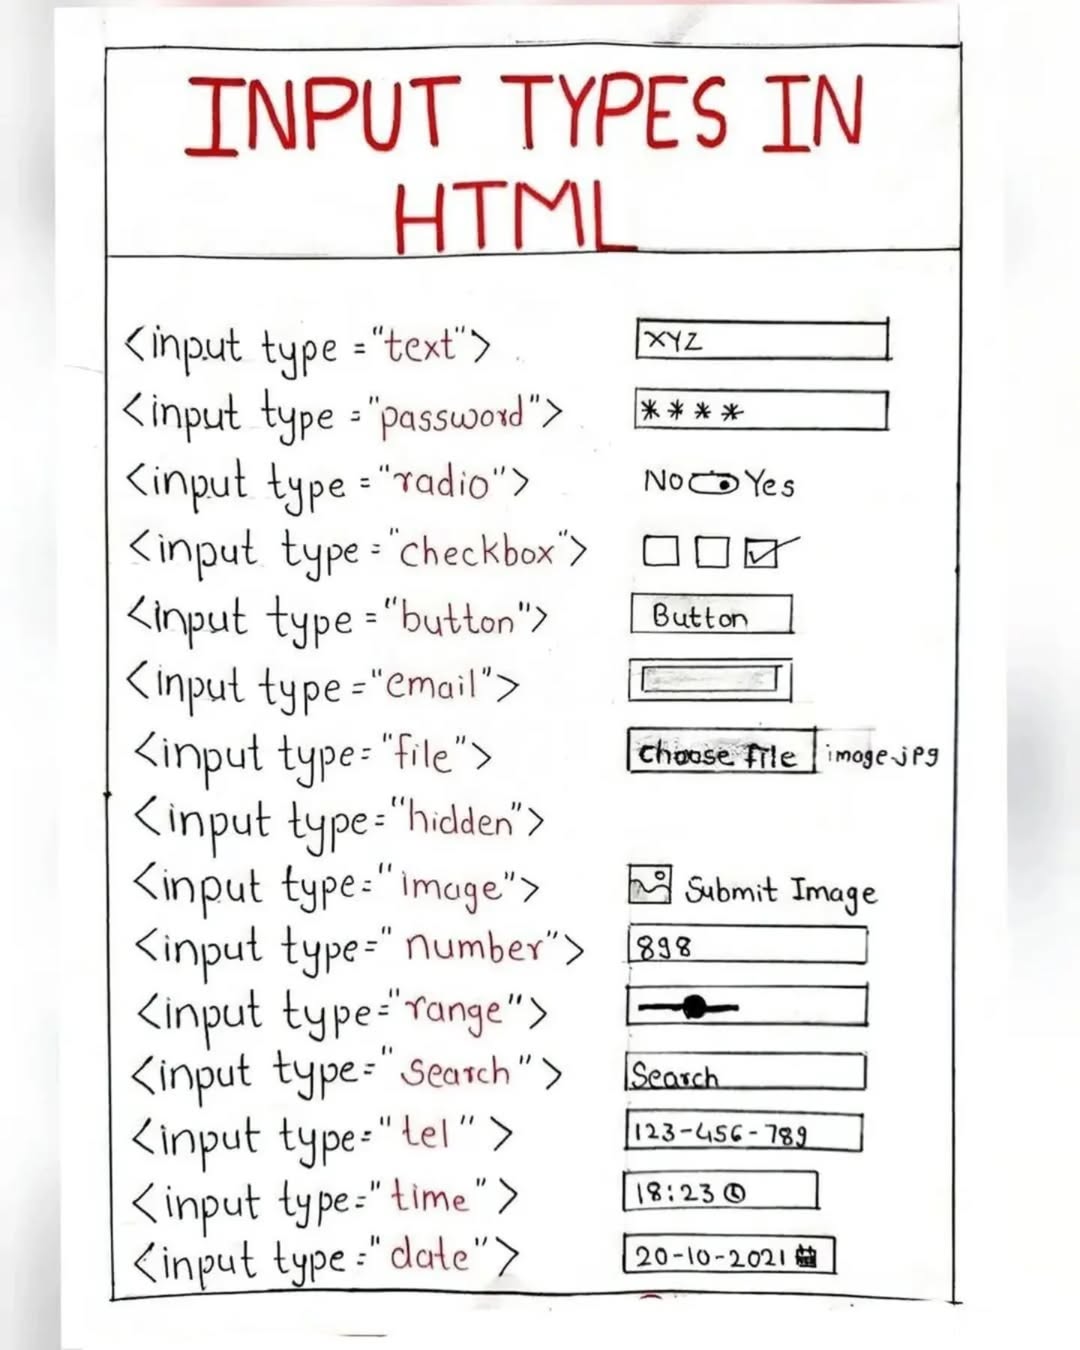 INPUT TYPES IN
HTML
<input type ="text"> XYZ
<input type ="password"> ****
<input type ="radio"> No Yes
<input type ="checkbox">
<input type ="button"> Button
<input type ="email">
<input type="file"> Choose file image.jpg
<input type="hidden">
<input type="image"> Submit Image
<input type="number"> 898
<input type="range">
<input type="Search"> Search
<input type="tel"> 123-456-789
<input type="time"> 18:23
<input type="date"> 20-10-2021